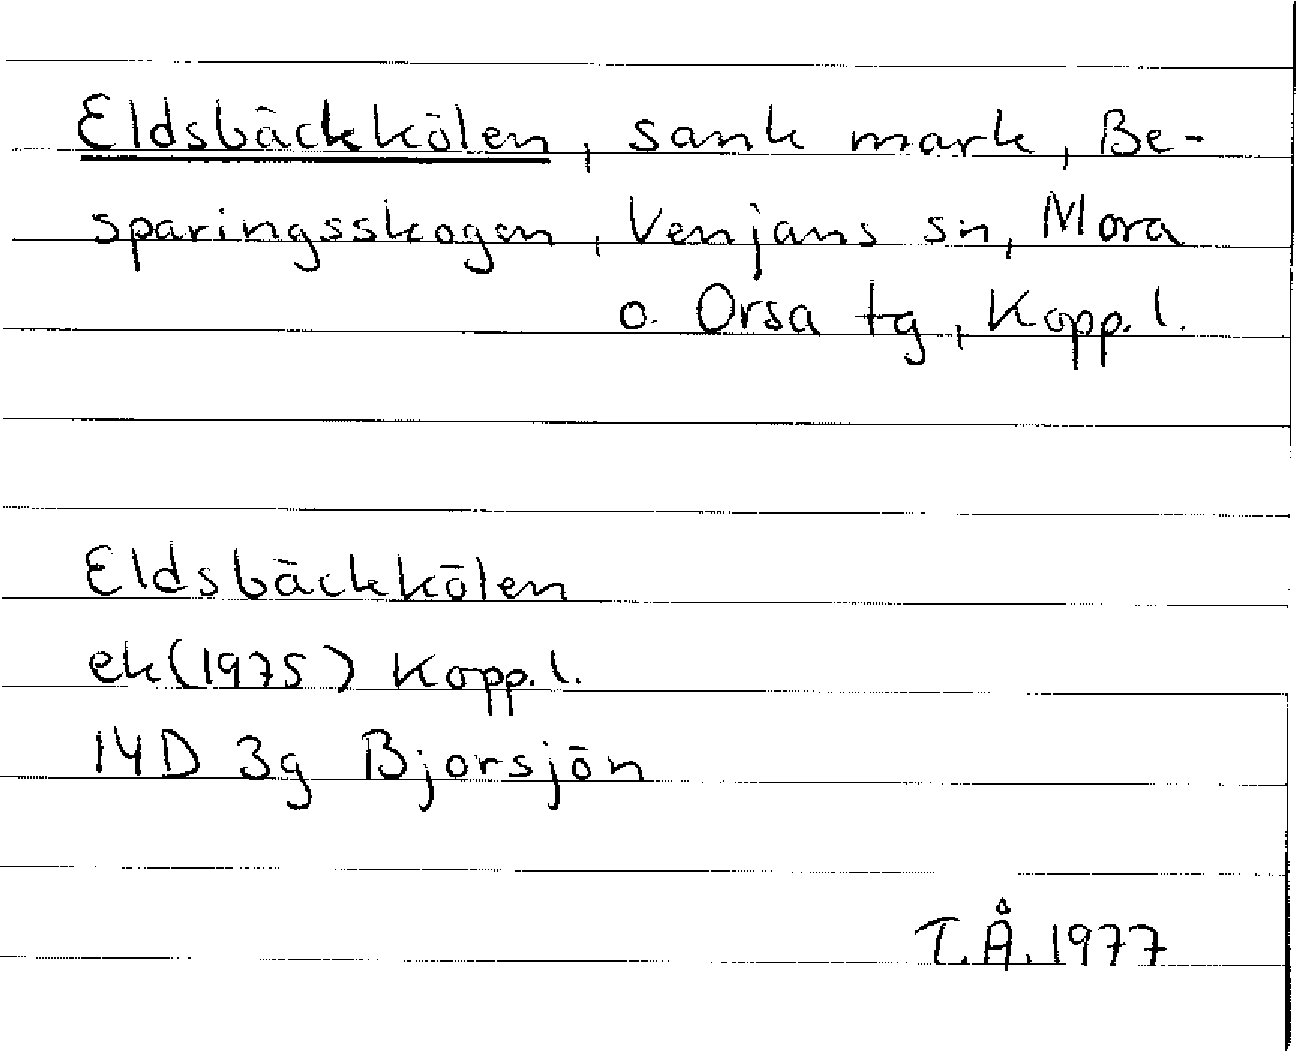 Eldsbäckkölen, sank mark, Be-
sparingsskogen, Venjans sn, Mora
o. Orsa tg, Kopp. l.
Eldsbäckkölen
ek(1975) Kopp. l.
14D 3g Bjorsjön
T.Å. 1977